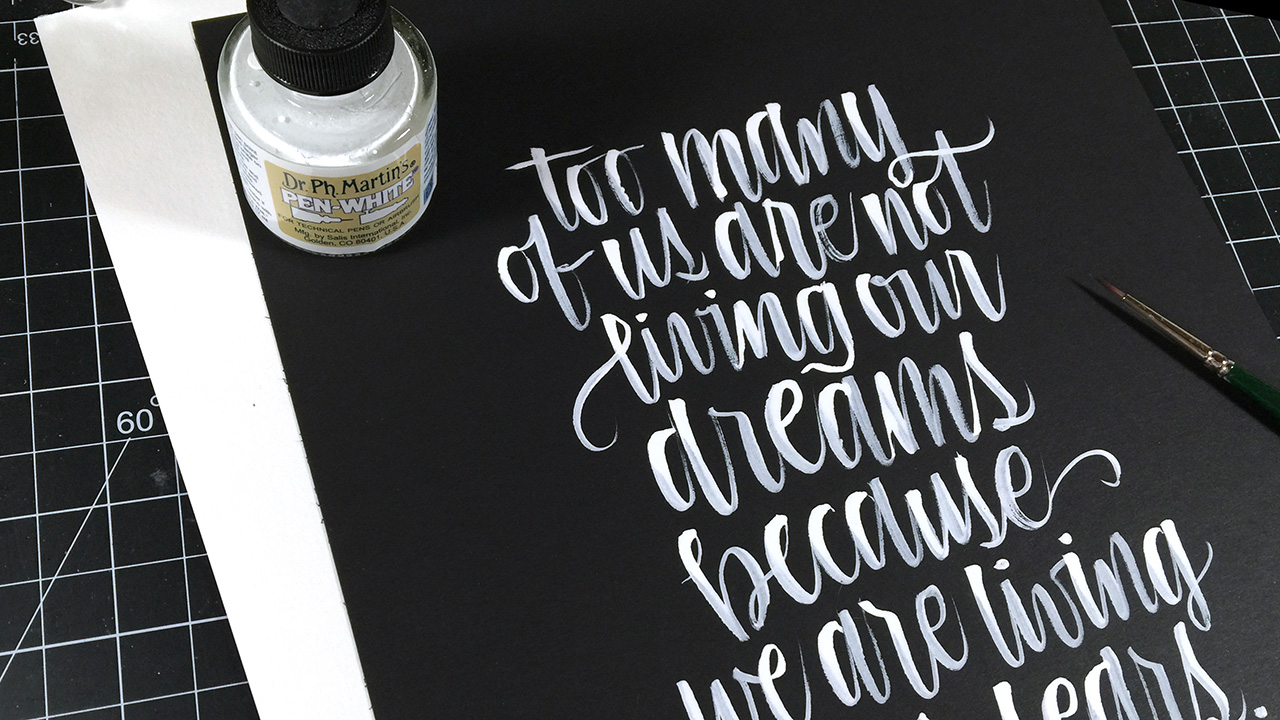 Dr. Ph. Martin's
PEN-WHITE
TECHNICAL PENS OR AIRBRUSH
Mfg. by Salis International,
Golden, CO 80401, U.S.A.
too many
of us are not
living our
dreams
because
we are living
fears.
60°
33